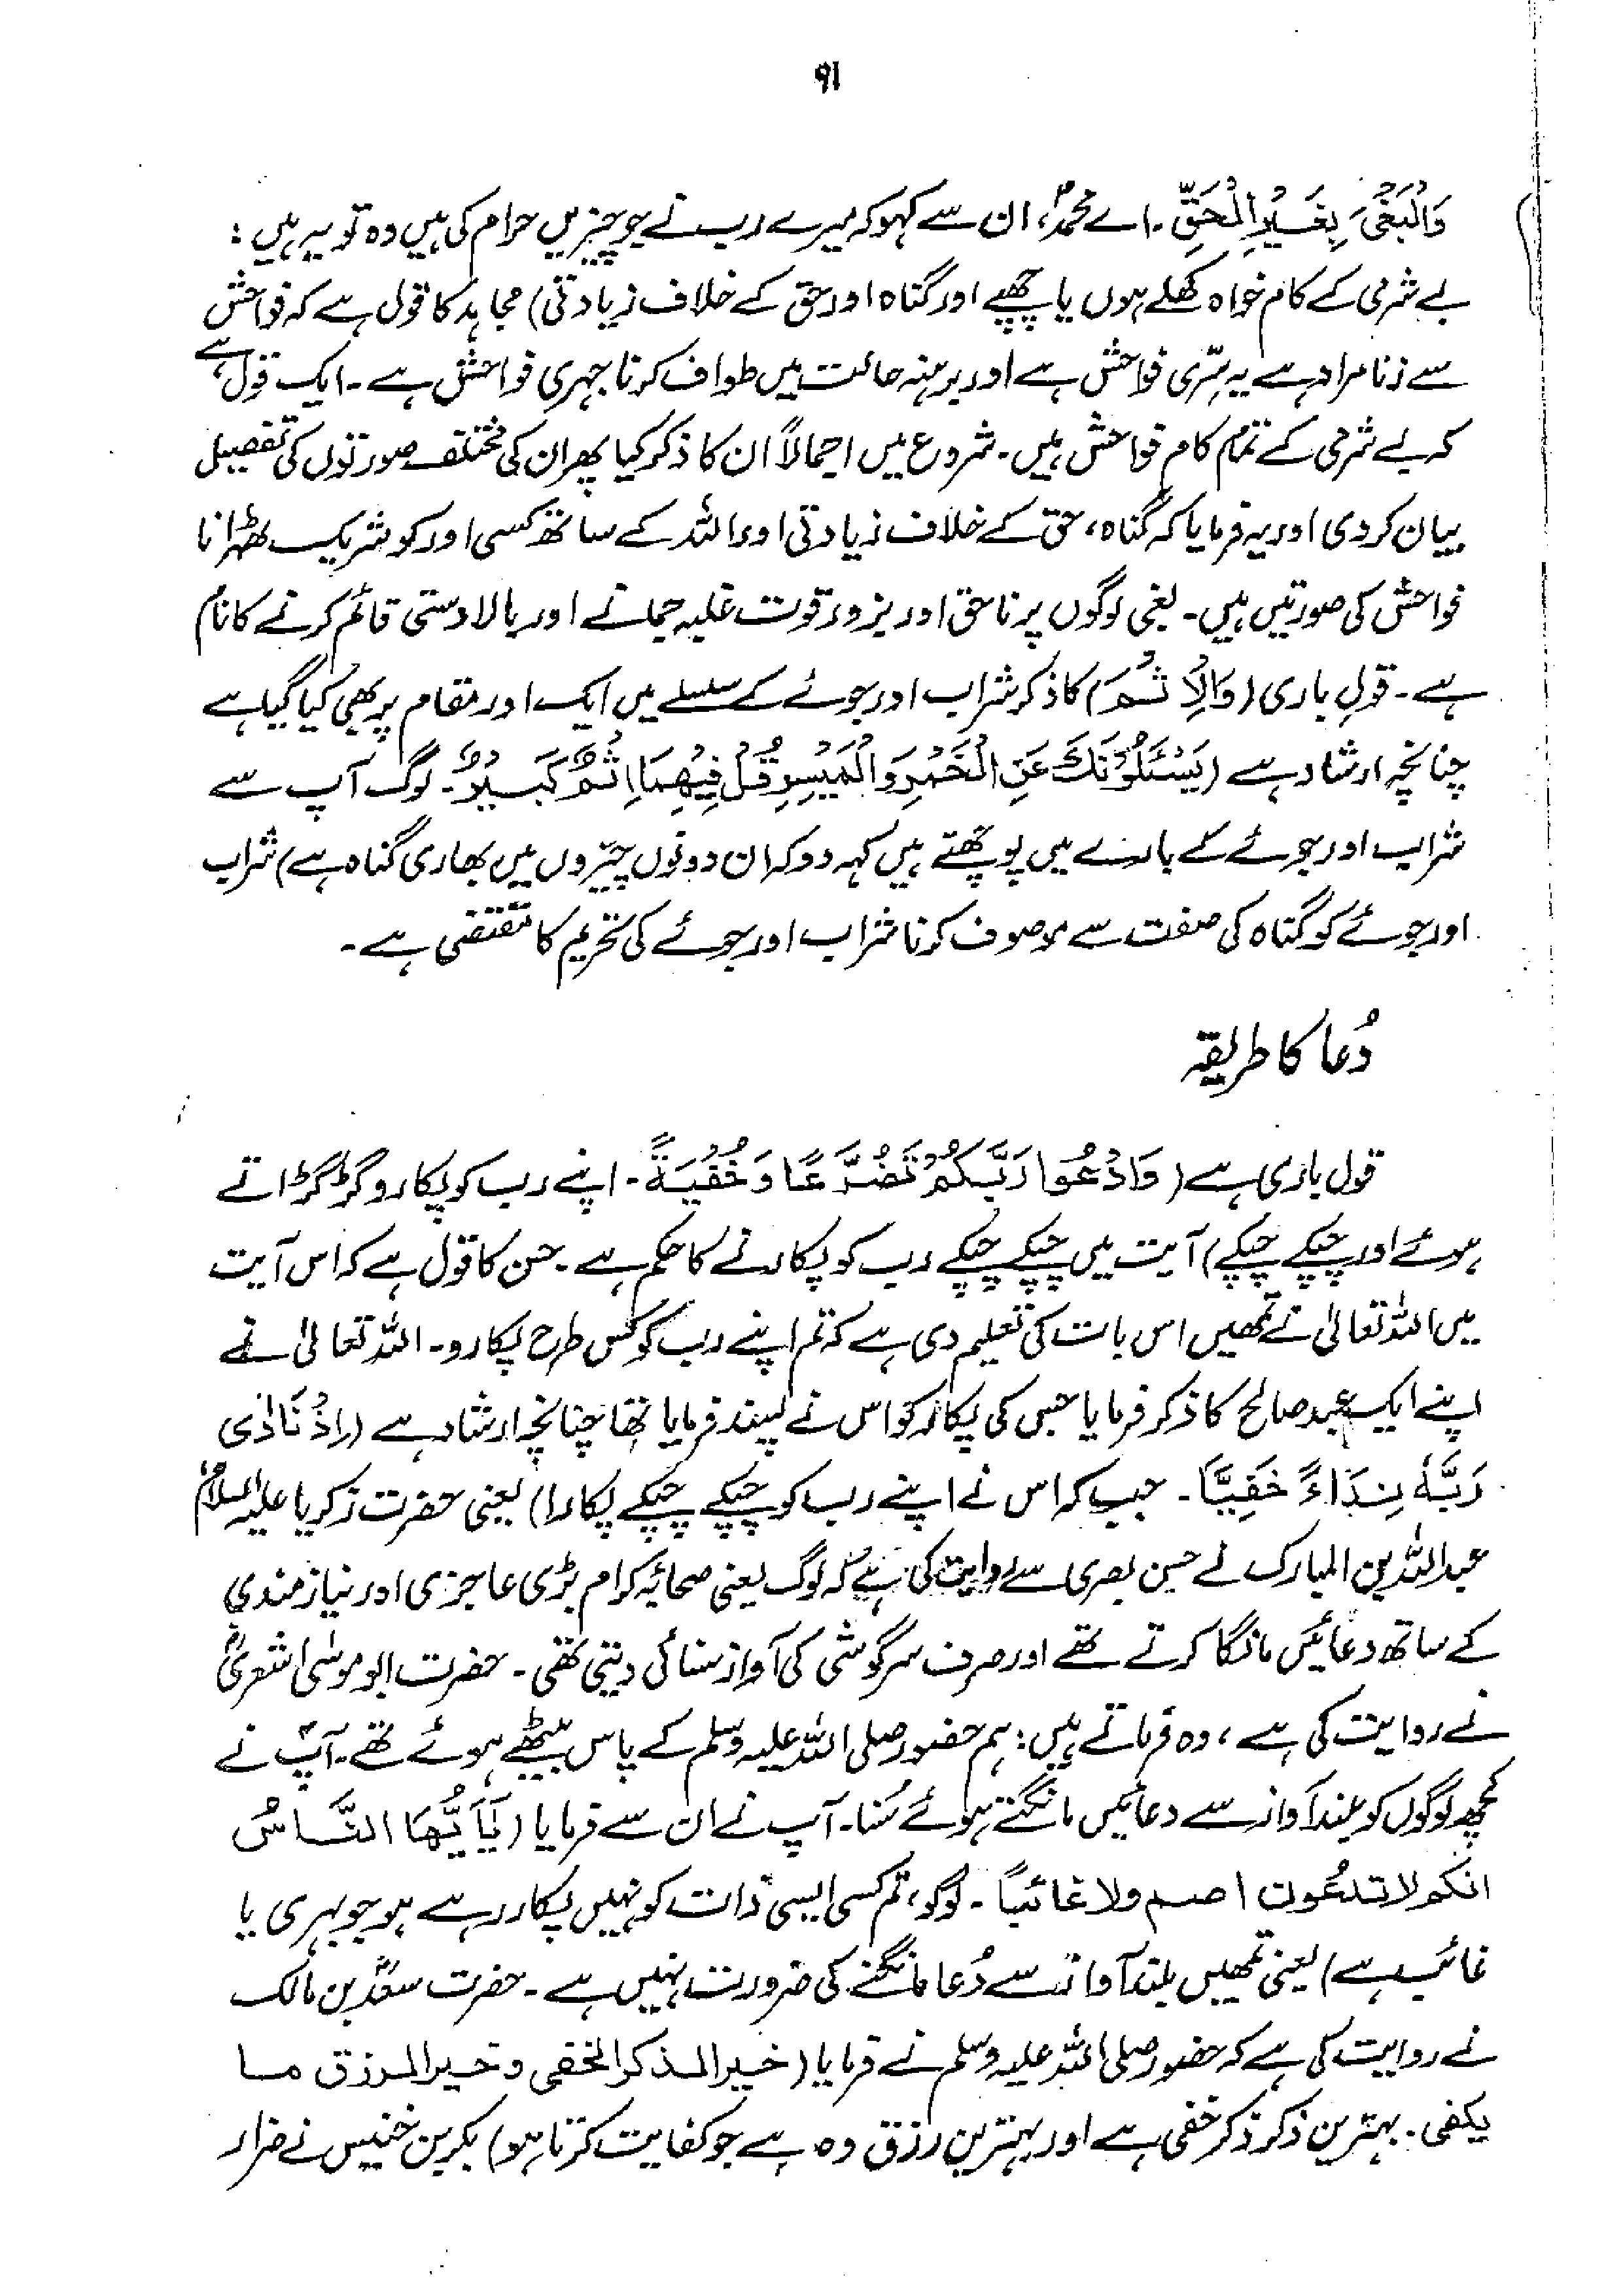 ۹۱
وَالْبَغْیَ بِغَیْرِ الْحَقِّ۔ اے محمدؐ، ان سے کہو کہ میرے رب نے جو چیزیں حرام کی ہیں وہ تو یہ ہیں:
بے شرمی کے کام خواہ کھلے ہوں یا چھپے اور گناہ اور حق کے خلاف زیادتی) مجاہد کا قول ہے کہ فواحش
سے زنا مراد ہے یہ سِرّی فواحش ہے اور برہنہ حالت میں طواف کرنا جہری فواحش ہے۔ ایک قول ہے
کہ بے شرمی کے تمام کام فواحش ہیں۔ شروع میں اجمالاً ان کا ذکر کیا پھر ان کی مختلف صورتوں کی تفصیل
بیان کر دی اور یہ فرمایا کہ گناہ، حق کے خلاف زیادتی اور اللہ کے ساتھ کسی اور کو شریک ٹھہرانا
فواحش کی صورتیں ہیں۔ بغی لوگوں پر ناحق اور بزور قوت غلبہ جمانے اور بالادستی قائم کرنے کا نام
ہے۔ قولِ باری (وَالْاِثْمَ) کا ذکر شراب اور جوئے کے سلسلے میں ایک اور مقام پر بھی کیا گیا ہے
چنانچہ ارشاد ہے (یَسْئَلُوْنَكَ عَنِ الْخَمْرِ وَالْمَیْسِرِ قُلْ فِیْهِمَا اِثْمٌ كَبِیْرٌ۔ لوگ آپ سے
شراب اور جوئے کے بارے میں پوچھتے ہیں کہہ دو کہ ان دونوں چیزوں میں بھاری گناہ ہے) شراب
اور جوئے کو گناہ کی صفت سے موصوف کرنا شراب اور جوئے کی تحریم کا مقتضی ہے۔
دُعا کا طریقہ
قول باری ہے (وَادْعُوا رَبَّكُمْ تَضَرُّعًا وَخُفْیَةً۔ اپنے رب کو پکارو گڑگڑاتے
ہوئے اور چپکے چپکے) آیت میں چپکے چپکے رب کو پکارنے کا حکم ہے۔ حسن کا قول ہے کہ اس آیت
میں اللہ تعالیٰ نے تمھیں اس بات کی تعلیم دی ہے کہ تم اپنے رب کو کس طرح پکارو۔ اللہ تعالیٰ نے
اپنے ایک عبد صالح کا ذکر فرمایا جس کی پکار کو اس نے پسند فرمایا تھا چنانچہ ارشاد ہے (اِذْ نَادٰی
رَبَّهٗ نِدَاءً خَفِیًّا۔ جب کہ اس نے اپنے رب کو چپکے چپکے پکارا) یعنی حضرت زکریا علیہ السلام
عبداللہ بن المبارک نے حسن بصری سے روایت کی ہے کہ لوگ یعنی صحابۂ کرام بڑی عاجزی اور نیازمندی
کے ساتھ دعائیں مانگا کرتے تھے اور صرف سرگوشی کی آواز سنائی دیتی تھی۔ حضرت ابوموسٰی اشعریؓ
نے روایت کی ہے، وہ فرماتے ہیں: ہم حضور صلی اللہ علیہ وسلم کے پاس بیٹھے ہوئے تھے۔ آپؐ نے
کچھ لوگوں کو بلند آواز سے دعائیں مانگتے ہوئے سُنا۔ آپ نے ان سے فرمایا (یٰاَیُّهَا النَّاسُ
انکم لا تدعُون اصم ولا غائباً۔ لوگو، تم کسی ایسی ذات کو نہیں پکار رہے ہو جو بہری یا
غائب ہے) یعنی تمھیں بلند آواز سے دُعا مانگنے کی ضرورت نہیں ہے۔ حضرت سعدؓ بن مالک
نے روایت کی ہے کہ حضور صلی اللہ علیہ وسلم نے فرمایا (خیر الذکر الخفی وخیر الرزق ما
یکفی۔ بہترین ذکر ذکر خفی ہے اور بہترین رزق وہ ہے جو کفایت کرتا ہو) بکر بن خنیس نے ضرار